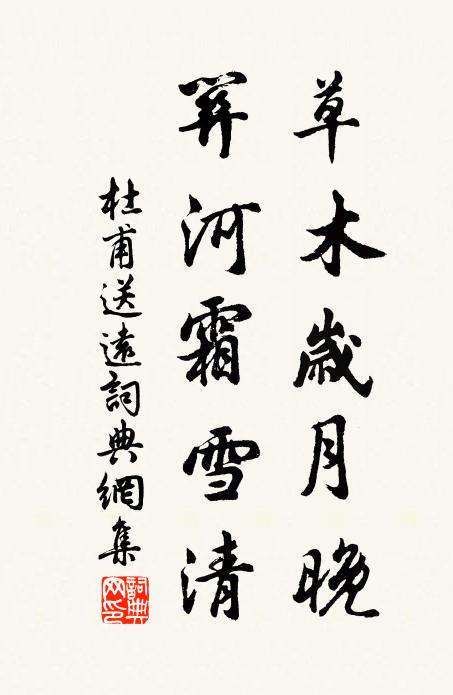 草木歲月晚
關河霜雪清
杜甫送遠詞典網集
詞典網印